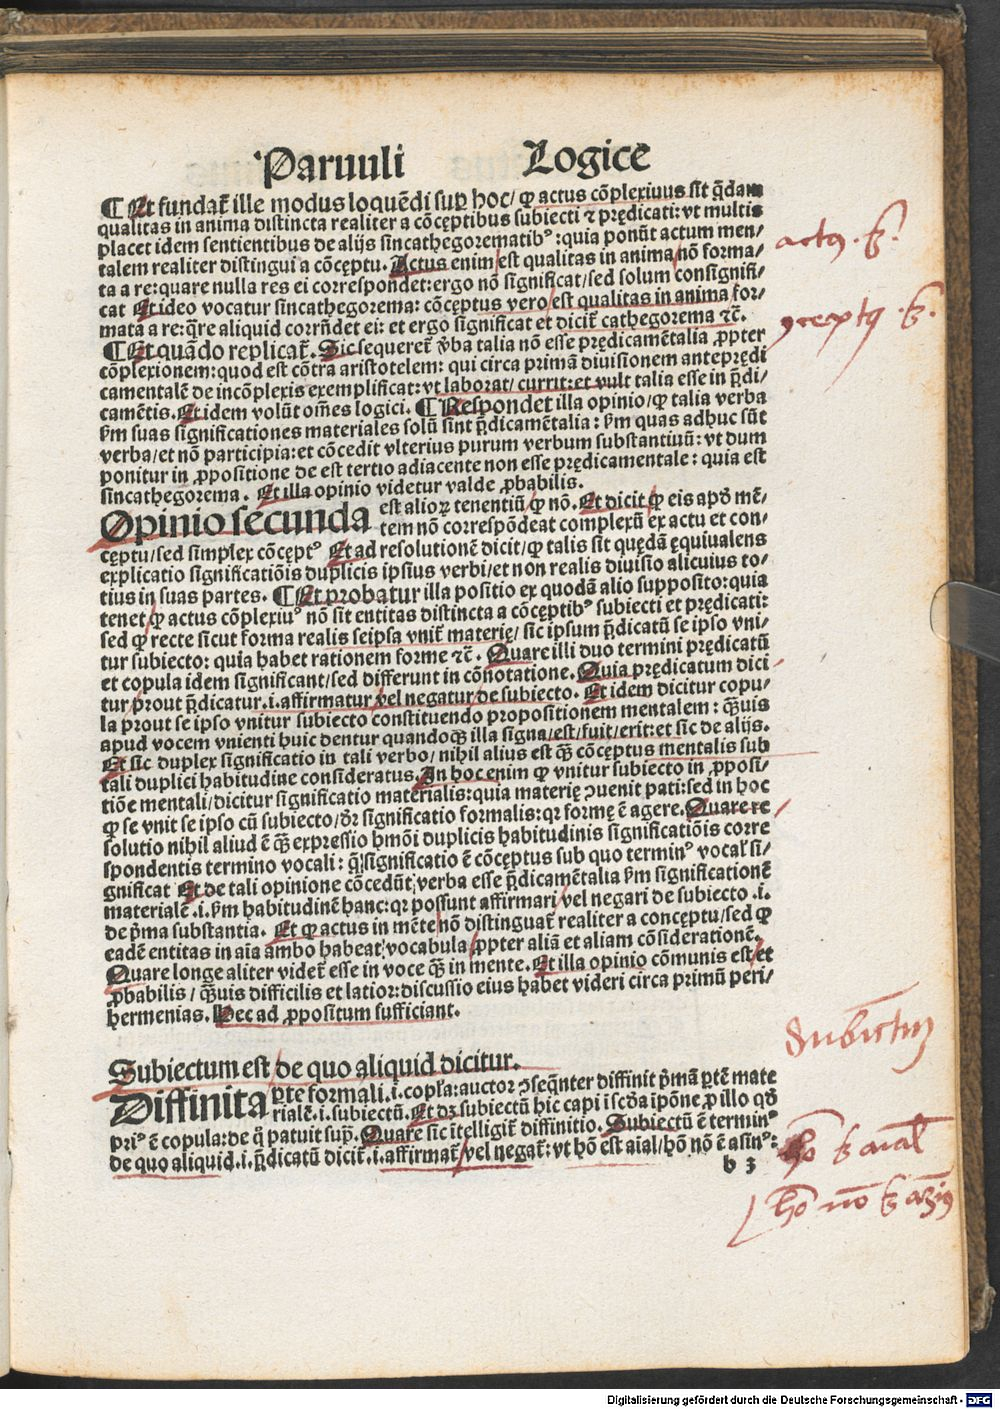 Paruuli Logice
¶ Et fundat̄ ille modus loquēdi sup hoc/ ꝙ actus cōplexiuus sit q̄dam
qualitas in anima distincta realiter a cōceptibus subiecti ⁊ prędicati: vt multis
placet idem sentientibus de alijs sincathegorematibꝰ: quia ponūt actum men⸗
talem realiter distingui a cōcęptu. Actus enim est qualitas in anima nō forma⸗
ta a re: quare nulla res ei correspondet: ergo nō significat/ sed solum consignifi⸗
cat Et ideo vocatur sincathegorema: cōcęptus vero est qualitas in anima for⸗
mata a re: q̄re aliquid corrn̄det ei: et ergo significat et dicit̄ cathegorema ⁊c̄.
¶ Et quādo replicat̄. Sic sequeret̄ v̄ba talia nō esse prędicamētalia ꝓpter
cōplexionem: quod est cōtra aristotelem: qui circa primā diuisionem antepredi
camentalē de incōplexis exemplificat: vt laborat/ currit: et vult talia esse in p̄di⸗
camētis. Et idem volūt om̄es logici. ¶ Respondet illa opinio/ ꝙ talia verba
ẜm suas significationes materiales solū sint p̄dicamētalia: ẜm quas adhuc sūt
verba/ et nō participia: et cōcedit vlterius purum verbum substantiuū: vt dum
ponitur in ꝓpositione de est tertio adiacente non esse prędicamentale: quia est
sincathegorema. Et illa opinio videtur valde ꝓbabilis.
Opinio secunda est alioꝝ tenentiū ꝙ nō. Et dicit ꝙ eis apd̄ mē⸗
tem nō correspōdeat complexū ex actu et con⸗
cęptu/ sed simplex cōcęptꝰ Et ad resolutionē dicit/ ꝙ talis sit quędā ęquiualens
explicatio significatiōis duplicis ipsius verbi/ et non realis diuisio alicuius to⸗
tius in suas partes. ¶ Et probatur illa positio ex quodā alio supposito: quia
tenet ꝙ actus cōplexiuꝰ nō sit entitas distincta a cōcęptibꝰ subiecti et prędicati:
sed ꝙ recte sicut forma realis seipsa vnit̄ materię/ sic ipsum p̄dicatū se ipso vni⸗
tur subiecto: quia habet rationem forme ⁊c̄. Quare illi duo termini prędicatū
et copula idem significant/ sed differunt in cōnotatione. Quia prędicatum dici
tur prout p̄dicatur .i. affirmatur vel negatur de subiecto. Et idem dicitur copu⸗
la prout se ipso vnitur subiecto constituendo propositionem mentalem: q̄uis
apud vocem vnienti huic dentur quandoqꝫ illa signa/ est/ fuit/ erit: et sic de alijs.
Et sic duplex significatio in tali verbo/ nihil alius est q̄ꝫ cōcęptus mentalis sub
tali duplici habitudine consideratus. In hoc enim ꝙ vnitur subiecto in ꝓposi⸗
tiōe mentali/ dicitur significatio materialis: quia materię ꝯuenit pati: sed in hoc
ꝙ se vnit se ipso cū subiecto/ dr̄ significatio formalis: qꝛ formę ē agere. Quare re
solutio nihil aliud ē q̄ꝫ expressio hmōi duplicis habitudinis significatiōis corre
spondentis termino vocali: q̄ significatio ē cōcęptus sub quo terminꝰ vocal̄ si⸗
gnificat Et de tali opinione cōcedūt verba esse p̄dicamētalia ẜm significationē
materialē .i. ẜm habitudinē hanc: qꝛ possunt affirmari vel negari de subiecto .i.
de p̄ma substantia. Et ꝙ actus in mēte nō distinguat̄ realiter a concęptu/ sed ꝙ
eadē entitas in aīa ambo habeat vocabula ꝓpter aliā et aliam cōsiderationē.
Quare longe aliter videt̄ esse in voce q̄ꝫ in mente. Et illa opinio cōmunis est/ et
ꝓbabilis/ q̄ꝫuis difficilis et latior: discussio eius habet videri circa primū peri⸗
hermenias. Hec ad ꝓpositum sufficiant.
Subiectum est de quo aliquid dicitur.
Diffinita ꝑte formali .i. copl̄a: auctor ꝯseq̄nter diffinit p̄mā ꝑtē mate
rialē .i. subiectū. Et dꝫ subiectū hic capi iscd̄a ipōne ꝓ illo qd̄
priꝰ ē copula: de q̄ patuit sup̄. Quare sic ītelligit̄ diffinitio. Subiectū ē terminꝰ
de quo aliquid .i. p̄dicatū dicit̄ .i. affirmat̄ vel negat̄: vt hō est aīal/ hō nō ē asinꝰ:
b 3
Subiectum
Digitalisierung gefördert durch die Deutsche Forschungsgemeinschaft - DFG